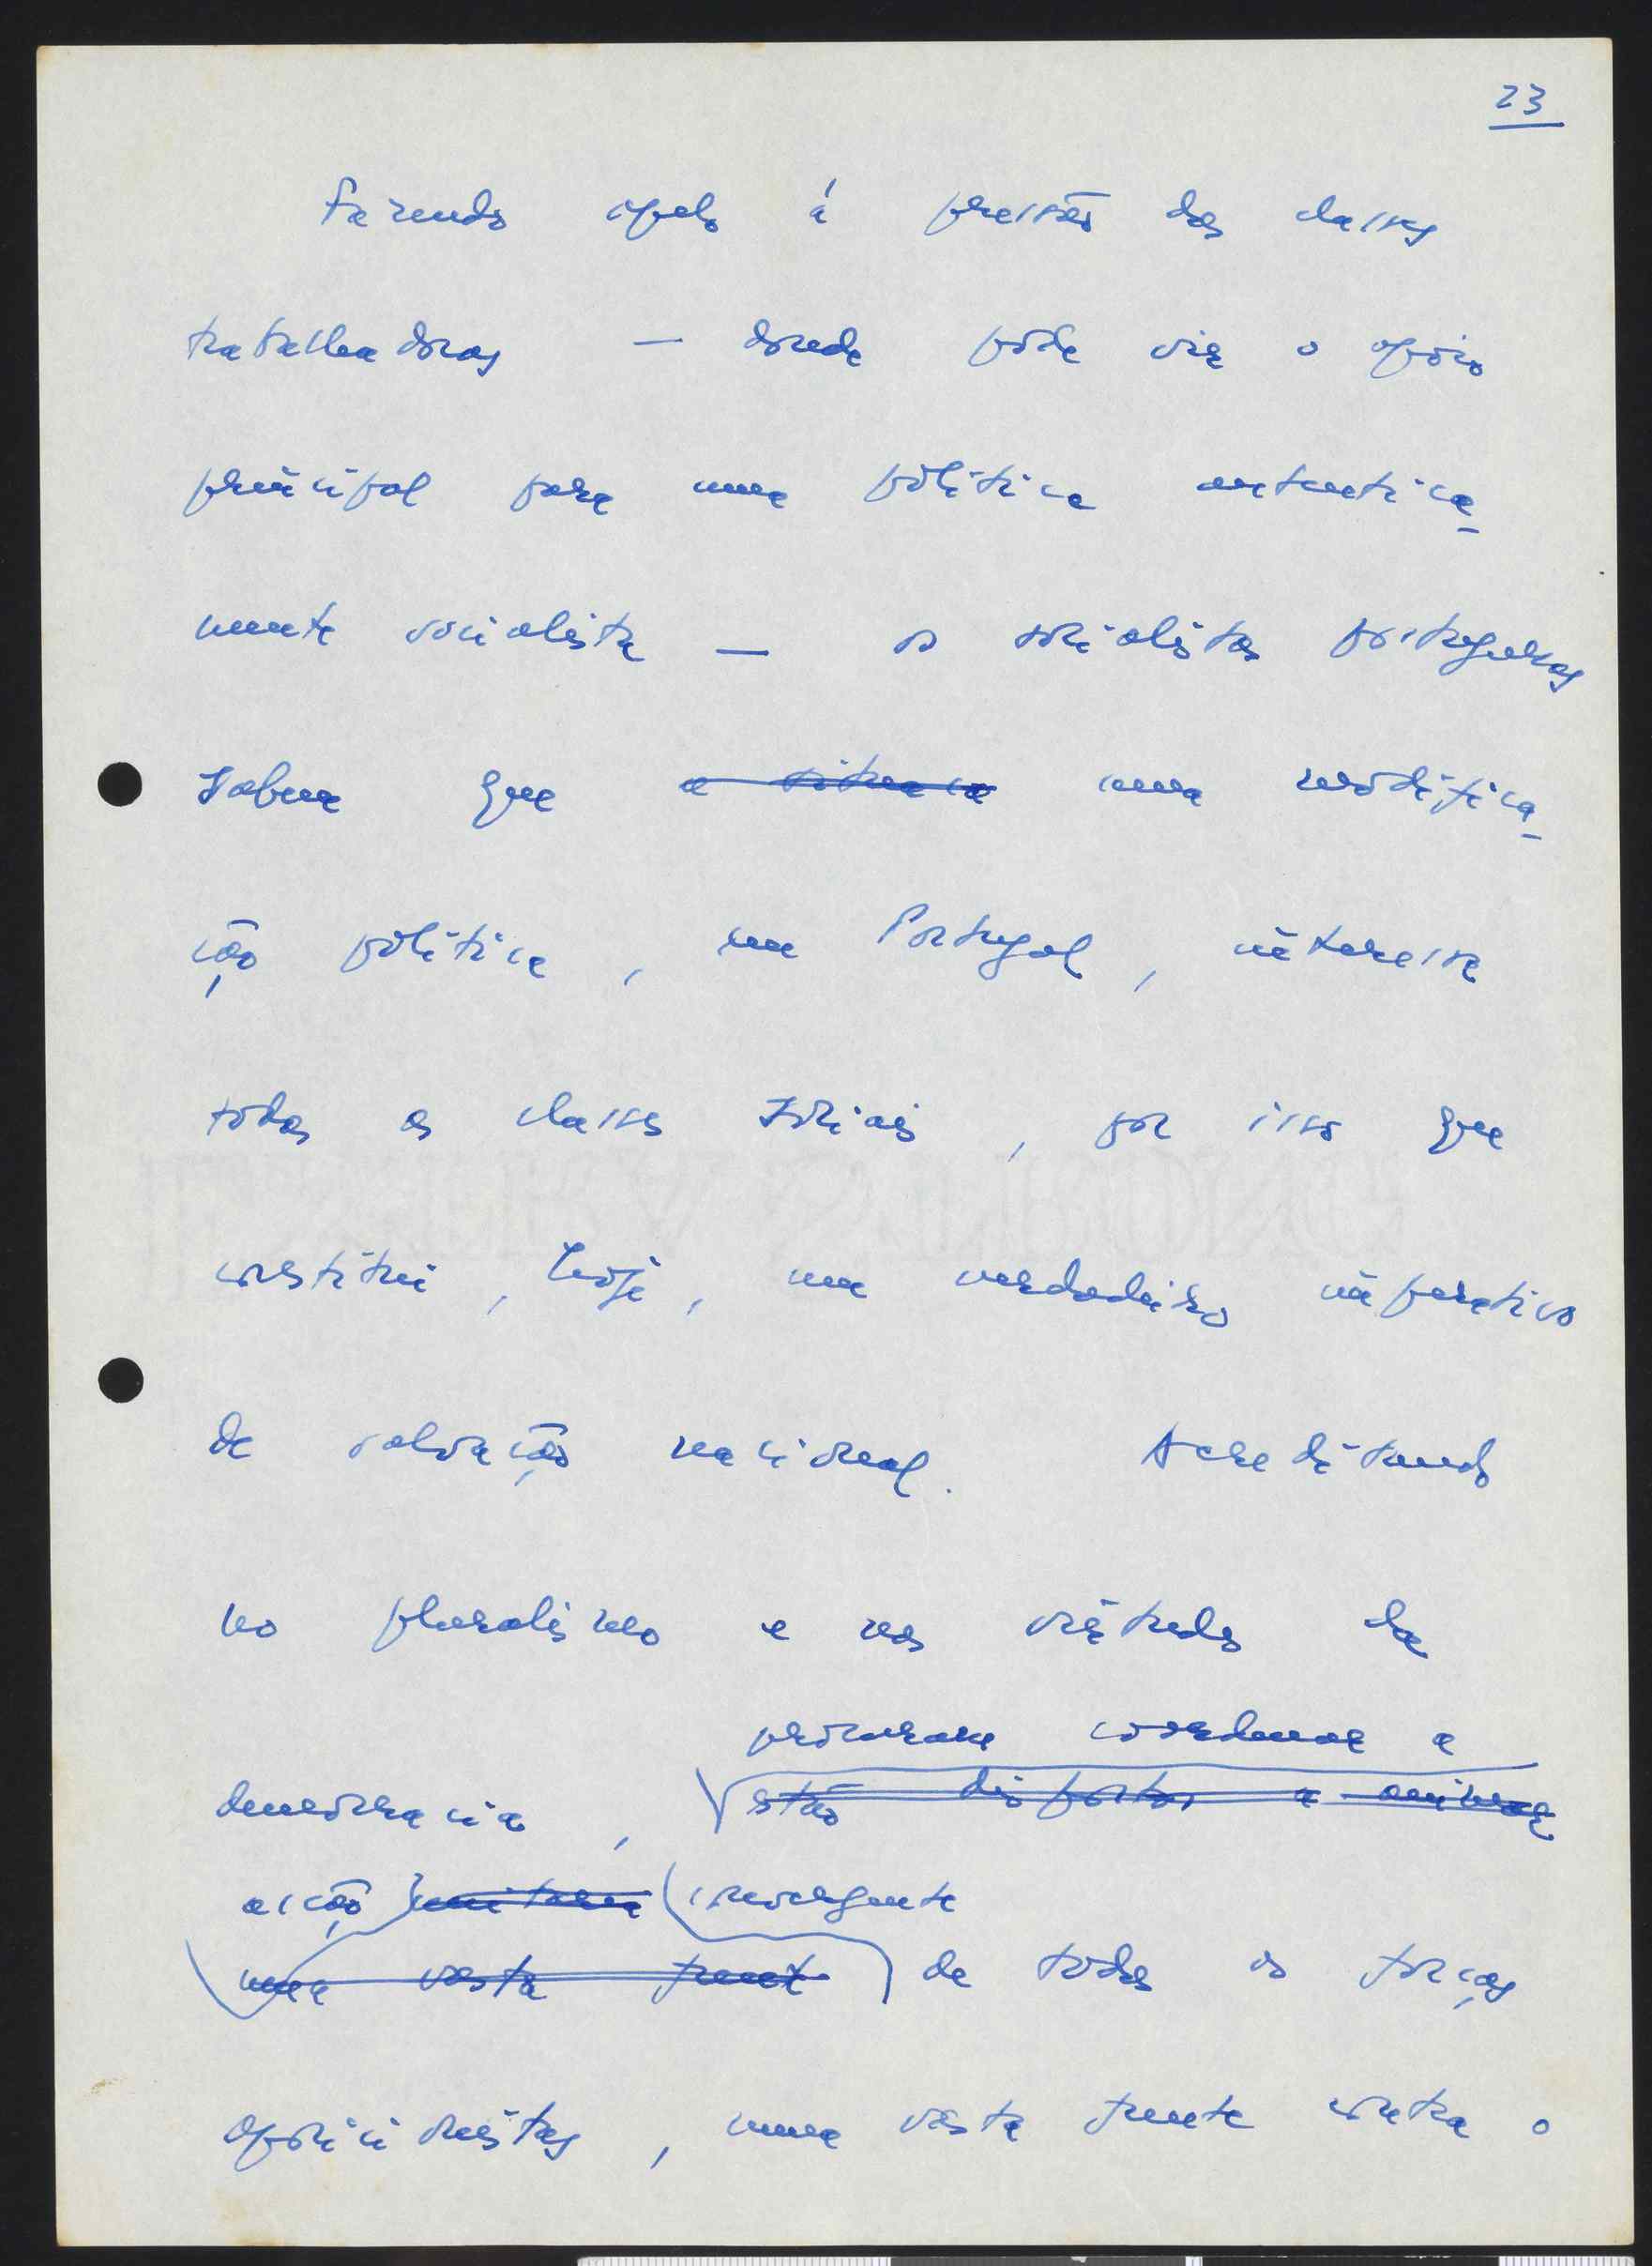 23
Fazendo apelo á pressão das classes
trabalhadoras — donde pode vir o apoio
principal para uma política autentica-
mente socialista — os socialistas portugueses
sabem que a situaçã uma modifica-
ção política, em Portugal, interessa
todas as classes sociais, por isso que
constitui, hoje, um verdadeiro imperativo
de salvação nacional. Acreditando
no pluralismo e nas virtudes da
procuram coordenar a
democracia, estão dispostos a animar
acção unitaria convergente
uma vasta frente de todas as forças
oposicionistas, numa vasta frente contra o